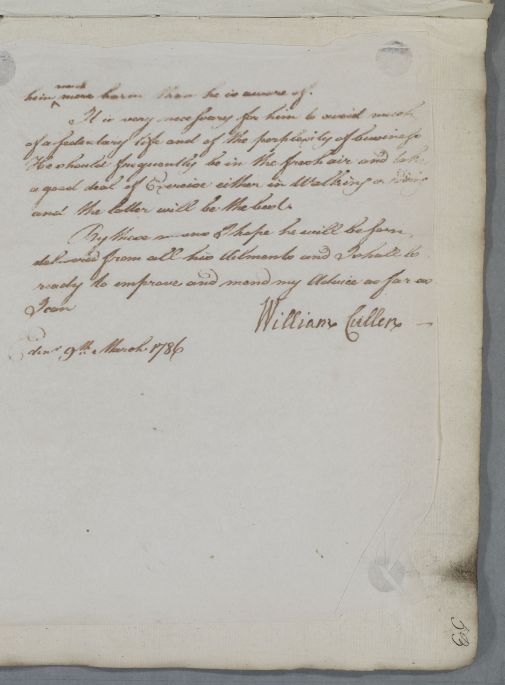 him much more harm than he is aware of.
It is very necessary for him to avoid much
of a sedentary life and of the perplexity of business
He should frequently be in the fresh air and take
a good deal of Exercise either in Walking or riding
and the latter will be the best.
By these means I hope he will be soon
delivered from all his ailments and I shall be
ready to improve and mend my Advice as far as
I can
William Cullen
Edinr 9th March 1786